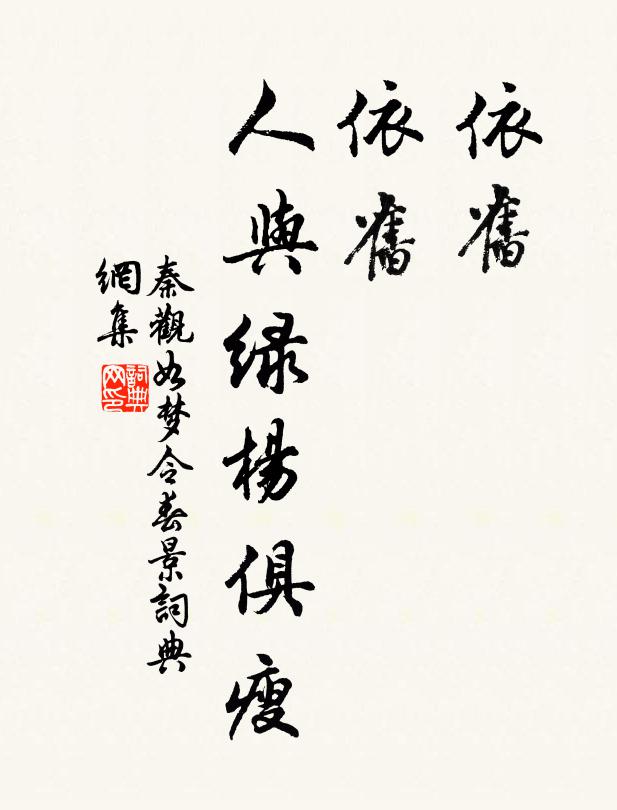 依舊
依舊
人與綠楊俱瘦
秦觀如梦令春景詞典
網集
詞典网印